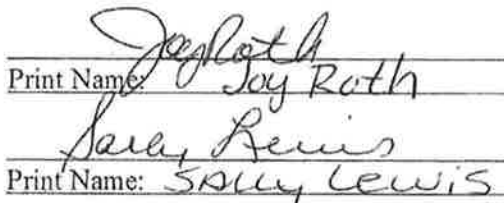 Joy Roth
Print Name: Joy Roth
Sally Lewis
Print Name: SALLY LEWIS